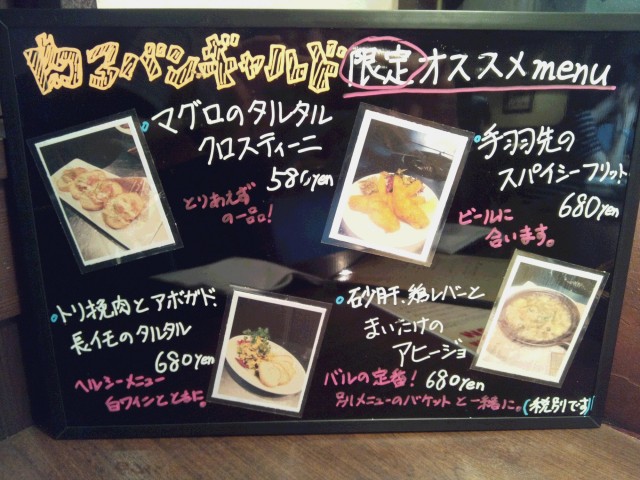 白るバンギャルド 限定 オススメmenu
マグロのタルタル
クロスティーニ
580yen
とりあえず
の一品!
手羽先の
スパイシーフリット
680yen
ビールに
合います。
トリ挽肉とアボガド、
長イモのタルタル
680yen
ヘルシーメニュー
白ワインとともに。
砂肝、鶏レバーと
まいたけの
アヒージョ
バルの定番! 680yen
別メニューのバケットと一緒に。(税別です)